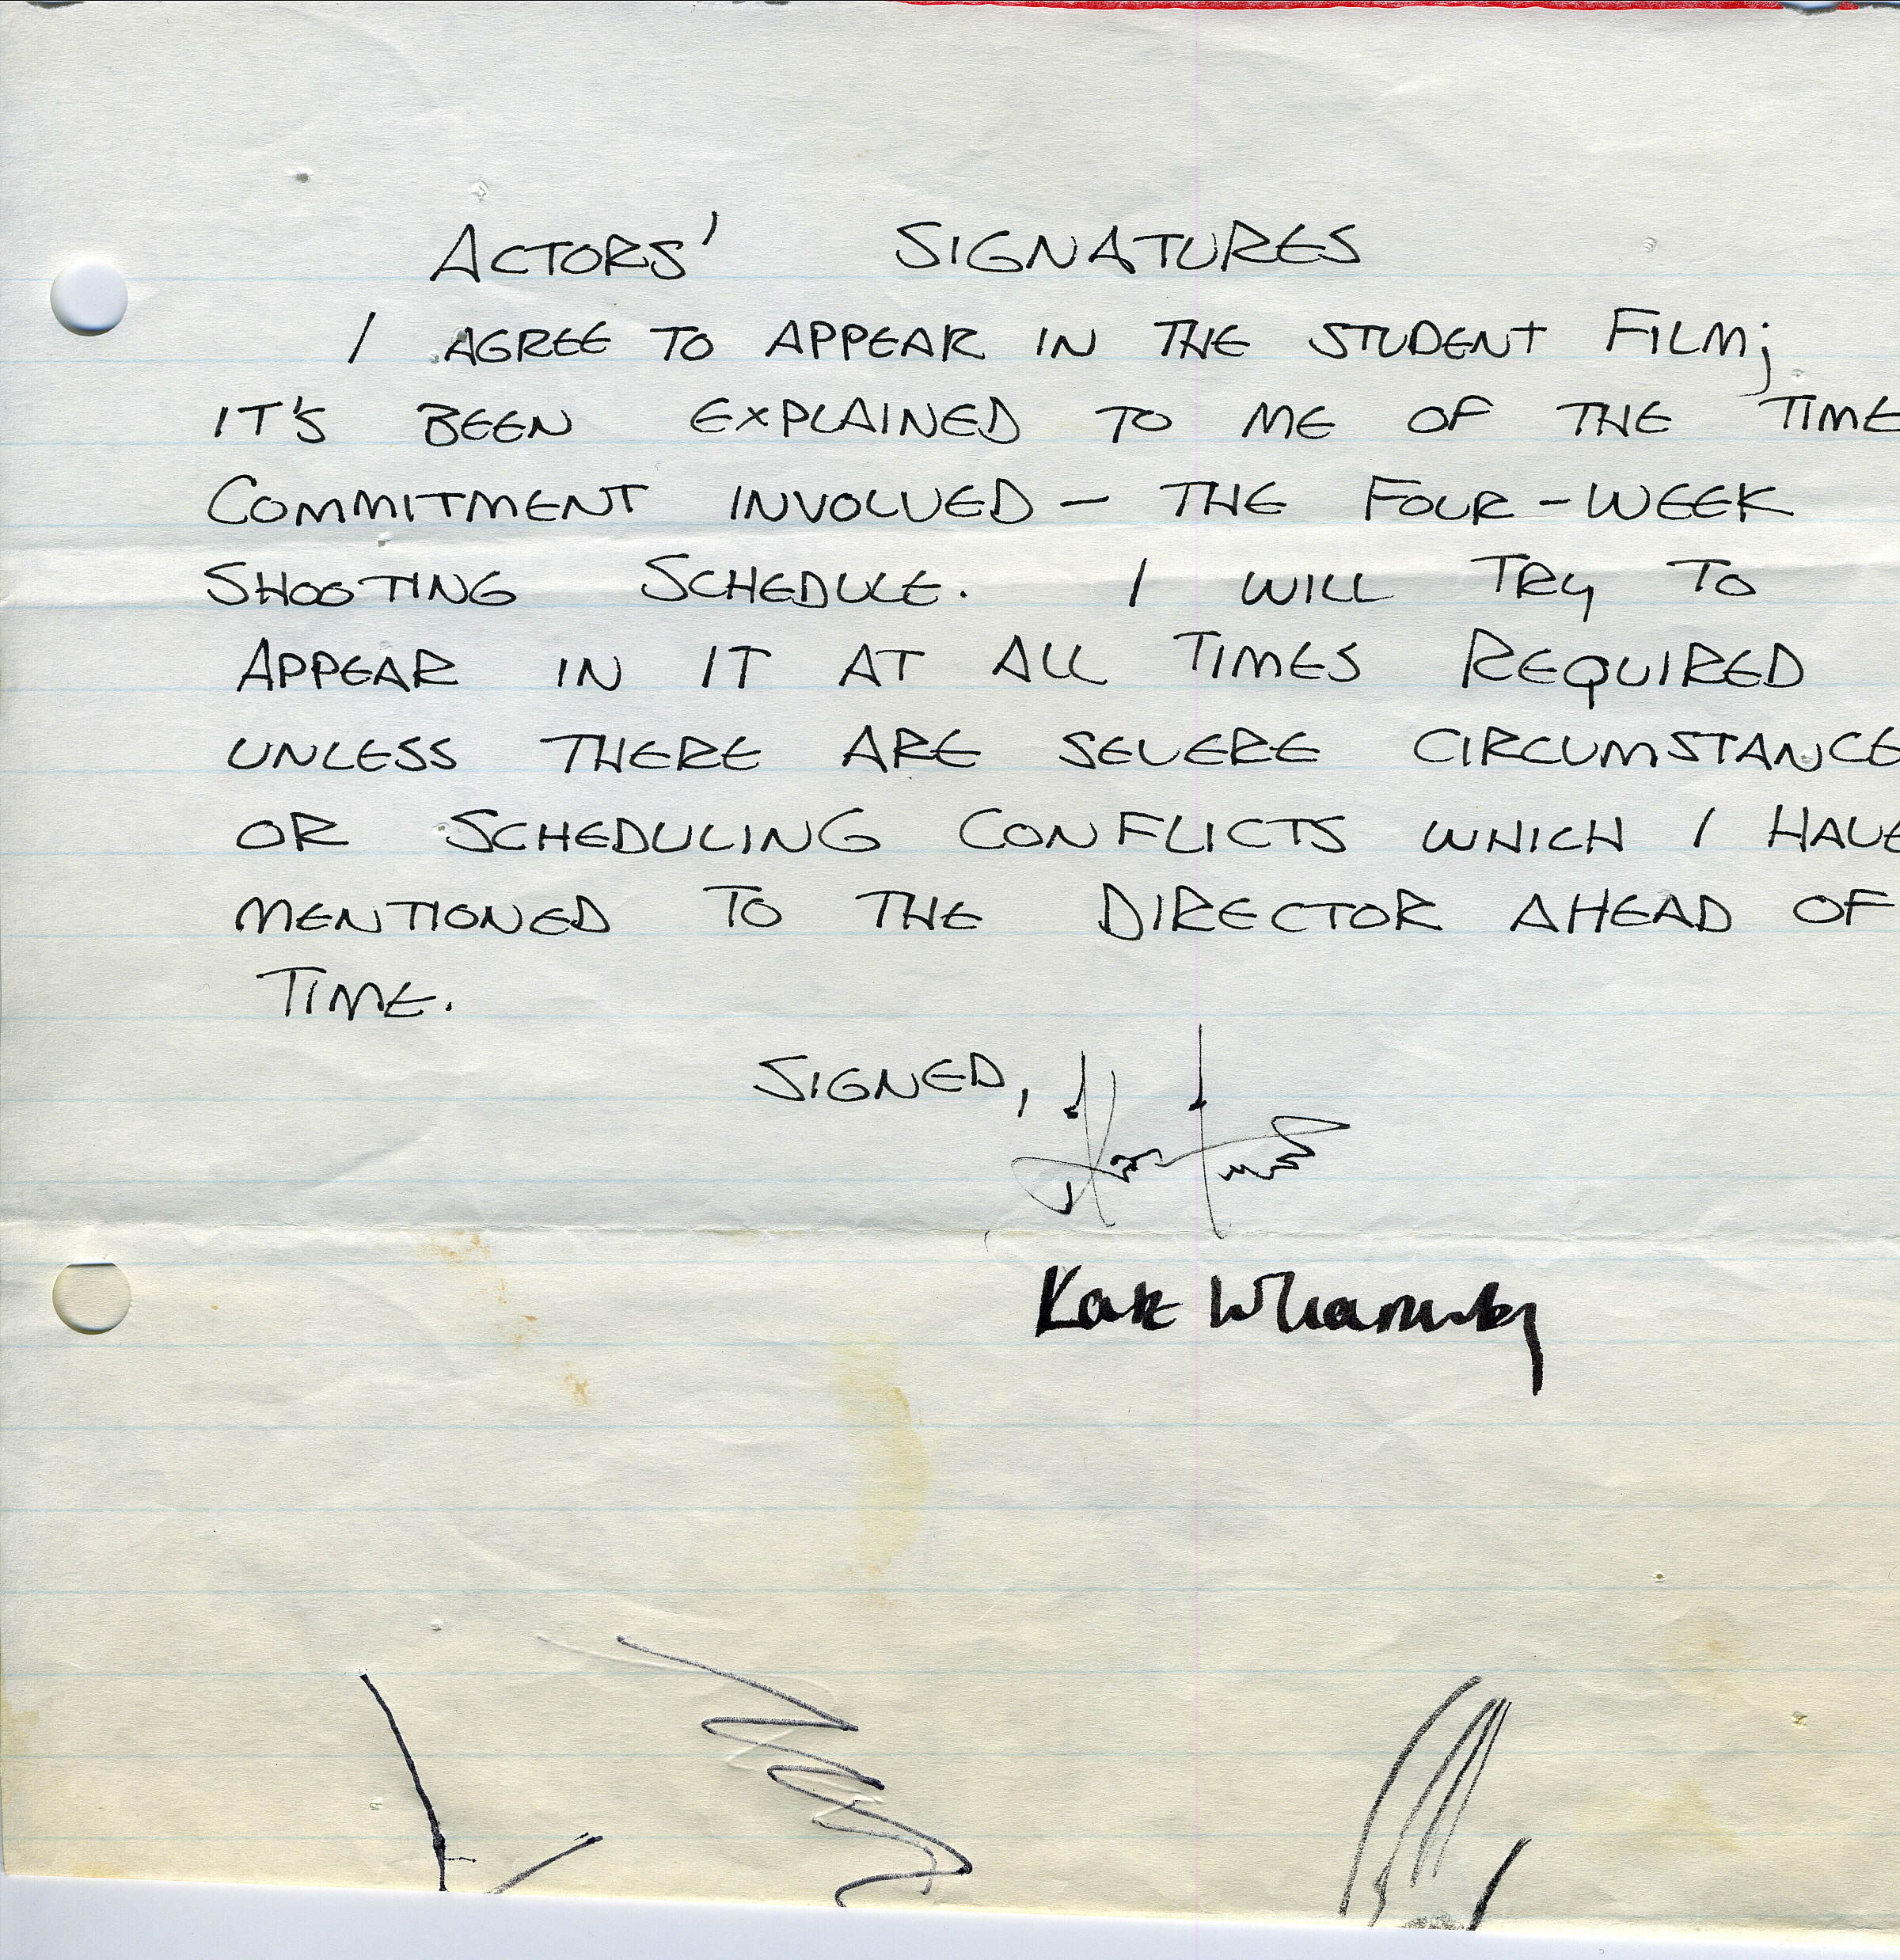 ACTORS' SIGNATURES
I AGREE TO APPEAR IN THE STUDENT FILM;
IT'S BEEN EXPLAINED TO ME OF THE TIME
COMMITMENT INVOLVED – THE FOUR-WEEK
SHOOTING SCHEDULE. I WILL TRY TO
APPEAR IN IT AT ALL TIMES REQUIRED
UNLESS THERE ARE SEVERE CIRCUMSTANCE
OR SCHEDULING CONFLICTS WHICH I HAVE
MENTIONED TO THE DIRECTOR AHEAD OF
TIME.
SIGNED,
Kate